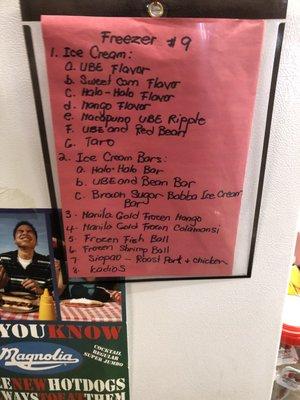 Freezer #9
1. Ice Cream:
a. UBE Flavor
b. Sweet Corn Flavor
c. Halo-Halo Flavor
d. Mango Flavor
e. Macapuno UBE Ripple
F. UBE and Red Bean
G. Taro
2. Ice Cream Bars:
a. Halo-Halo Bar
b. UBE and Bean Bar
c. Brown Sugar Bobba Ice Cream
Bars
3 - Manila Gold Frozen Mango
4 - Manila Gold Frozen Calamansi
5 - Frozen Fish Ball
6 - Frozen Shrimp Ball
7 - Siopao - Roast Pork + Chicken
8. Kadios
YOU KNOW
Magnolia
COCKTAIL
REGULAR
SUPER JUMBO
NEW HOTDOGS
TO EAT THEM